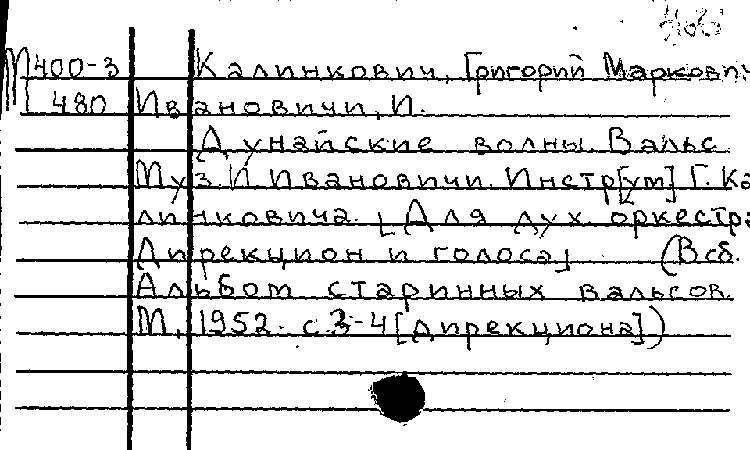 М400-3 Калинкович, Григорий Маркович
480 Ивановичи, И.
Дунайские волны. Вальс
Муз. И Ивановичи. Инстр[ум] Г. Ка
линковича. [Для дух. оркестра
Дирекцион и голоса] (В сб.
Альбом старинных вальсов.
М, 1952. с. 3-4[дирекциона])